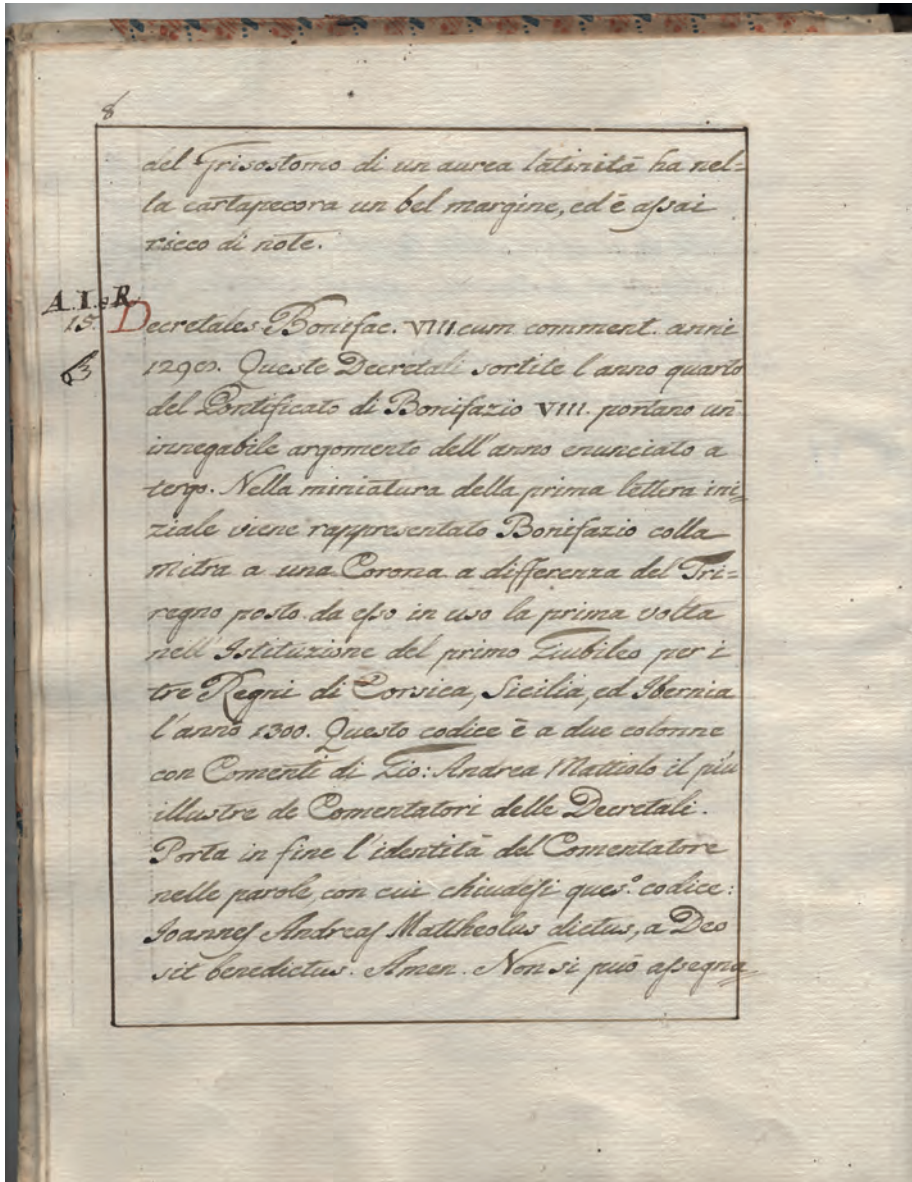 8
del Grisostomo di un aurea latinità ha nel=
la cartapecora un bel margine, ed è assai
ricco di note.
A.I. e R.
15. Decretales Bonifac. VIII cum comment. anni
Queste Decretali sortite l'anno quarto
del Pontificato di Bonifazio VIII. portano un
innegabile argomento dell'anno enunciato a
tergo. Nella miniatura della prima lettera ini=
ziale viene rappresentato Bonifazio colla
mitra a una Corona a differenza del Tri=
regno posto da esso in uso la prima volta
nell'Istituzione del primo Giubileo per i
tre Regni di Corsica, Sicilia, ed Ibernia
l'anno 1300. Questo codice è a due colonne
con Comenti di Gio: Andrea Mattiolo il più
illustre de Comentatori delle Decretali.
Porta in fine l'identità del Comentatore
nelle parole, con cui chiudesi ques.º codice:
Joannes Andreas Mattheolus dictus, a Deo
sit benedictus. Amen. Non si può assegna=